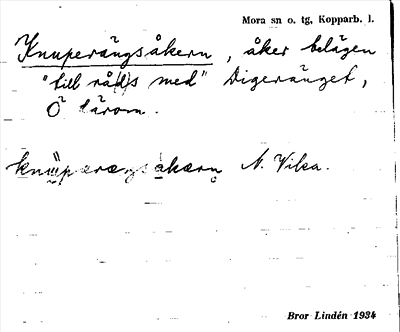 Mora sn o. tg, Kopparb. l.
Knuperängsåkern, åker belägen
"till rå(d)s med" Digeränget,
Ö därom.
knɯ̈pærængsåkærn N. Vika.
Bror Lindén 1934